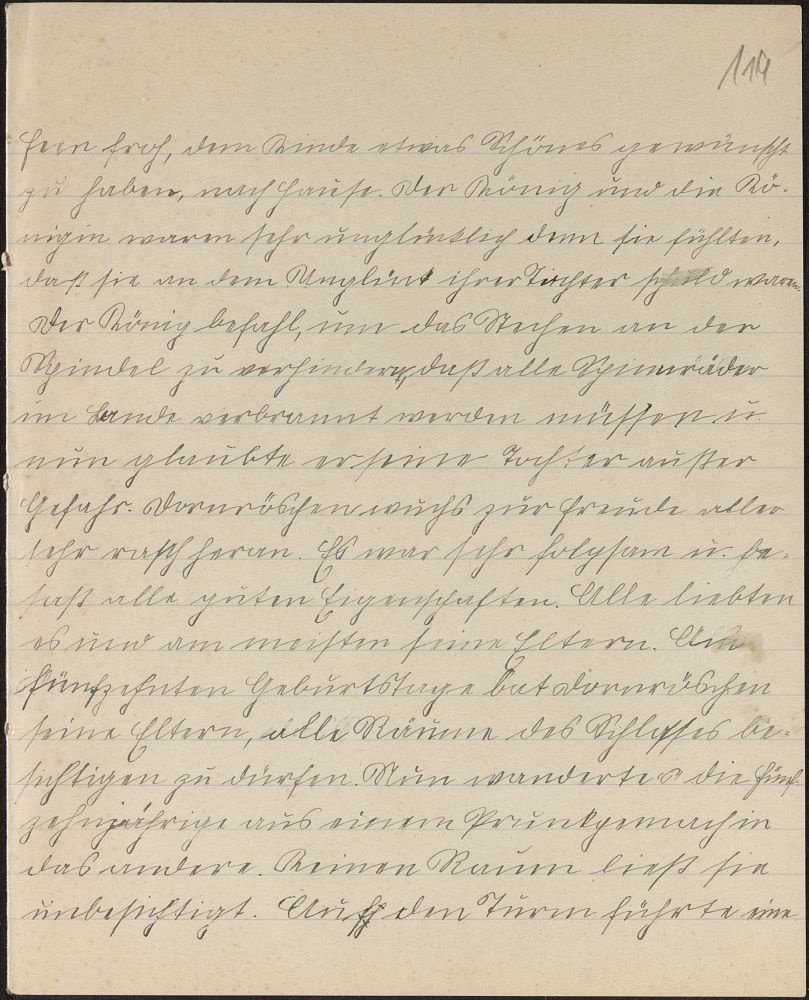 114
Feen froh, dem Kinde etwas Schönes gewünscht
zu haben, nach Hause. Der König und die Kö-
nigin waren sehr unglücklich denn sie fühlten,
daß sie an dem Unglück ihrer Tochter schuld waren.
Der König befahl, um das Stechen an der
Spindel zu verhindern, daß alle Spinnräder
im Lande verbrannt werden müssen u.
nun glaubte er seine Tochter außer
Gefahr. Dornröschen wuchs zur Freude aller
sehr rasch heran. Es war sehr folgsam u. be-
saß alle guten Eigenschaften. Alle liebten
es und am meisten seine Eltern. Am
fünfzehnten Geburtstage bat Dornröschen
seine Eltern, alle Räume des Schlosses be-
sichtigen zu dürfen. Nun wanderte die Fünf-
zehnjährige aus einem Prunkgemach in
das andere. Keinen Raum ließ sie
unbesichtigt. Auf den Turm führte eine